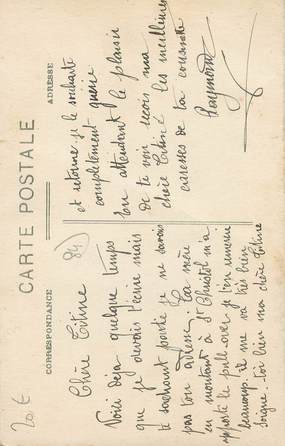 CARTE POSTALE
CORRESPONDANCE
ADRESSE
Chère Titine
Voici déjà quelque temps
que je devais t'écrire mais
te sachant partie je ne savais
pas ton adresse. Ta mère
en montant à St Christol m'a
apporté le pull-over je t'en remercie
beaucoup il me va très bien
soigne-toi bien ma chère Titine
et retourne je te souhaite
complètement guérie
En attendant le plaisir
de te voir reçois ma
chère Titine les meilleures
caresses de ta cousine
84)
20€